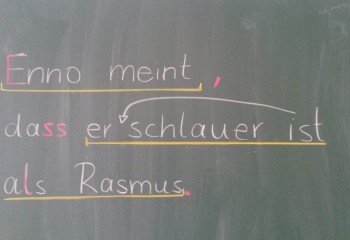 Enno meint,
dass er schlauer ist
als Rasmus.